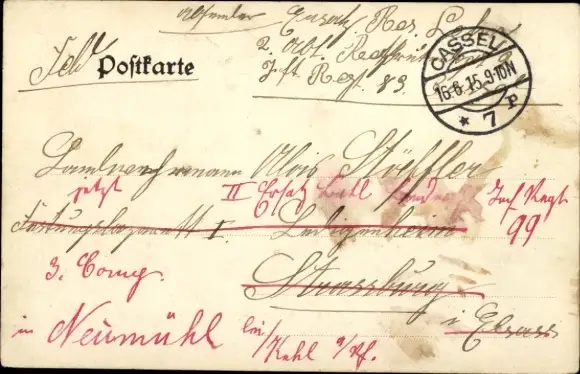 Absender Ersatz Res.
2. Abt.
Inft. Regt. 83.
Feld Postkarte
CASSEL
16.6.15.9-10N
* 7 P
Landwehrmann Alois Stöffler
jetzt II Ersatz Batl. Inf Regt
99
Festungslazarett I. Ledigenheim
3. Comp.
Strassburg
i. Elsass
in Neumühl bei
Kehl a/Rh.